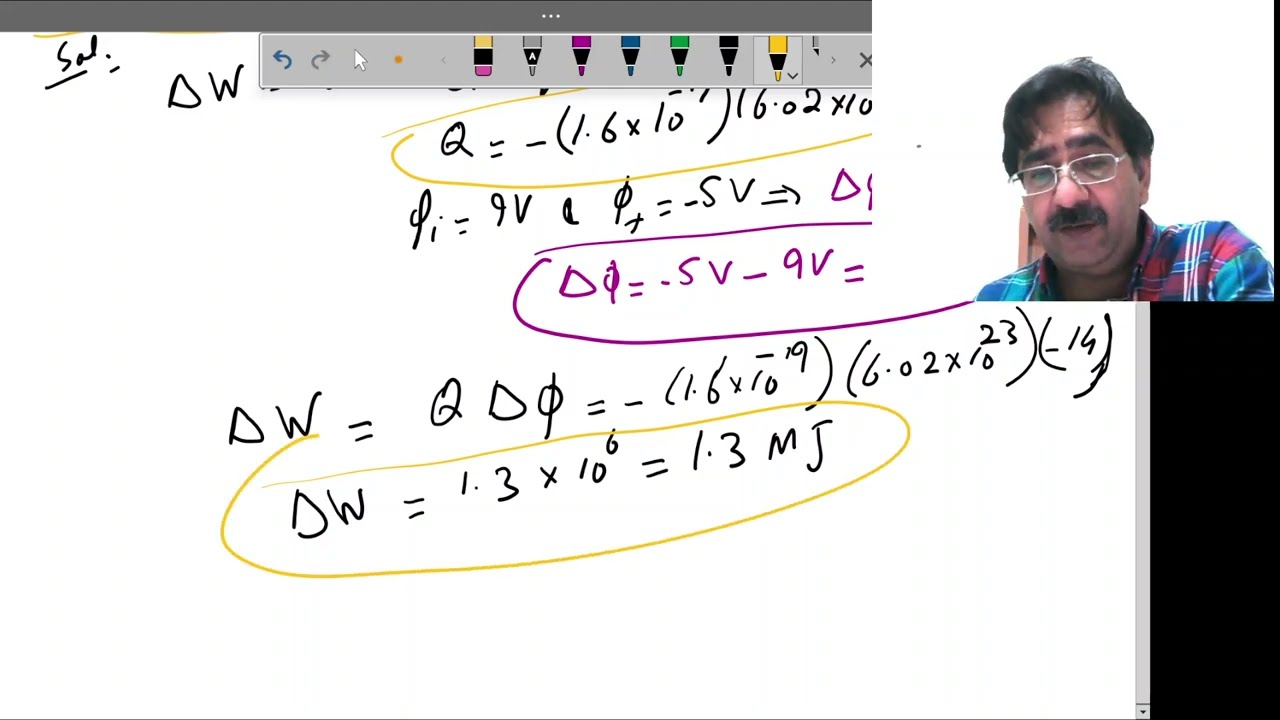 Sol:
ΔW =
Q = -(1.6 × 10⁻¹⁹)(6.02 × 10
φi = 9V & φf = -5V ⇒ Δφ
Δφ = -5V - 9V =
ΔW = Q Δφ = -(1.6 × 10⁻¹⁹)(6.02 × 10²³)(-14)
ΔW = 1.3 × 10⁶ = 1.3 MJ